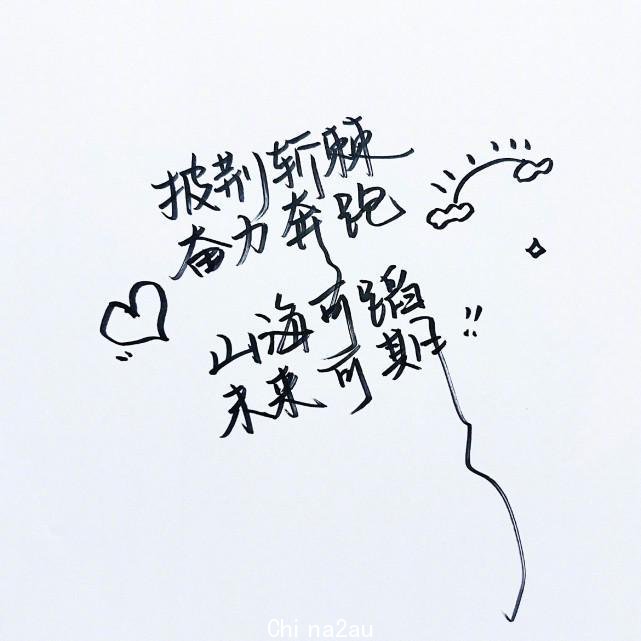 披荆斩棘
奋力奔跑
山海可蹈
未来可期!!
Chi na2au